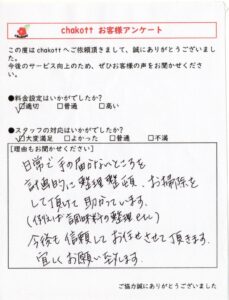 chakott お客様アンケート
この度はchakottへご依頼頂きまして、誠にありがとうございました。
今後のサービス向上のため、ぜひお客様の声をお聞かせください。
●料金設定はいかがでしたか?
☑適切 □普通 □高い
●スタッフの対応はいかがでしたか?
☑大変満足 □よかった □普通 □不満
[理由もお聞かせください]
日常で手の届かないところを
計画的に整理整頓、お掃除を
して頂けて助かっています。
(例えば調味料の整理etc)
今後も信頼してお任せさせて頂きます。
宜しくお願い致します。
ご協力誠にありがとうございました